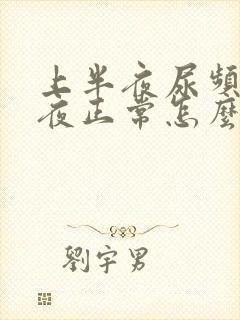 上半夜尿頻
夜正常怎麼
劉宇男